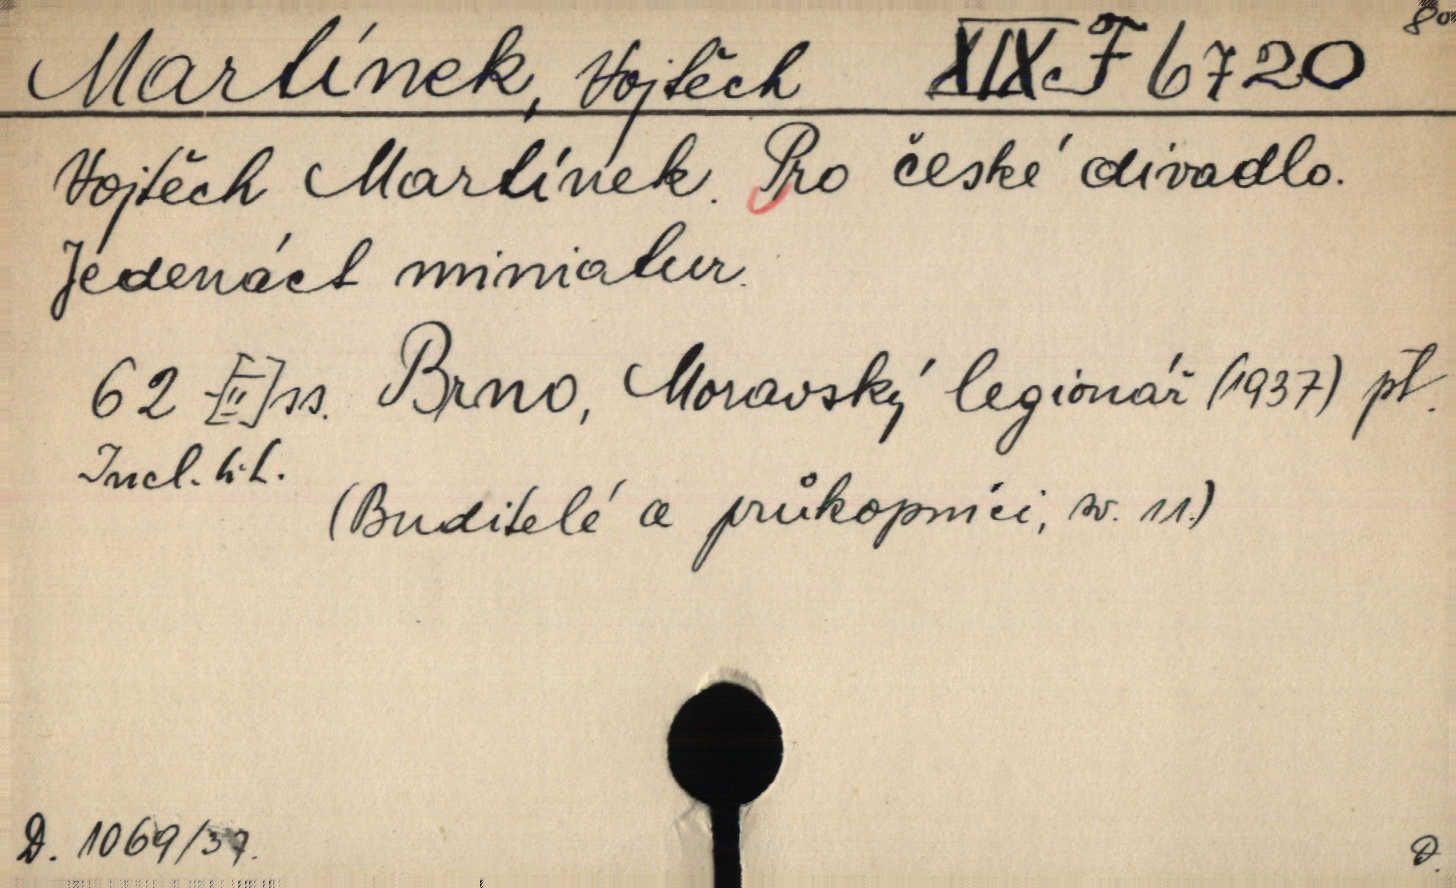 Martínek, Vojtěch XIX F 6720 8°
Vojtěch Martínek. Pro české divadlo.
Jedenáct miniatur.
62 [II] ss. Brno, Moravský legionář (1937) pt.
Incl. tit.
(Buditelé a průkopníci, sv. 11.)
D. 1069/37.
D.